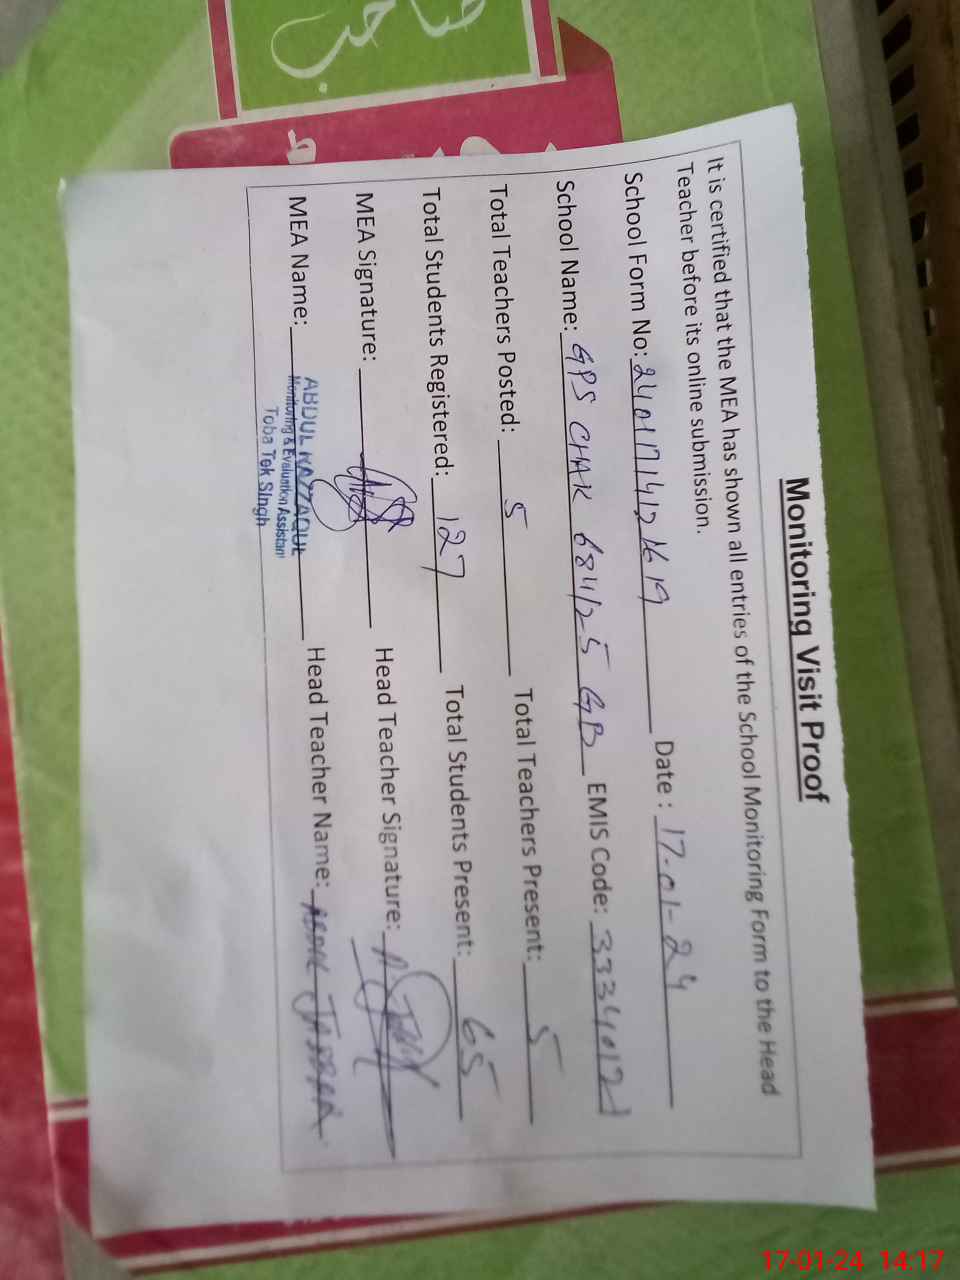 Monitoring Visit Proof
It is certified that the MEA has shown all entries of the School Monitoring Form to the Head
Teacher before its online submission.
School Form No: Date : 17-01-24
School Name: GPS CHAK 684/25 GB EMIS Code: 33340121
Total Teachers Posted: 5 Total Teachers Present: 5
Total Students Registered: 127 Total Students Present: 65
MEA Signature: Head Teacher Signature:
MEA Name: ABDUL RAZZAQUE Head Teacher Name: ABDUL JABBAR
Monitoring & Evaluation Assistant
Toba Tek Singh
17-01-24 14:17